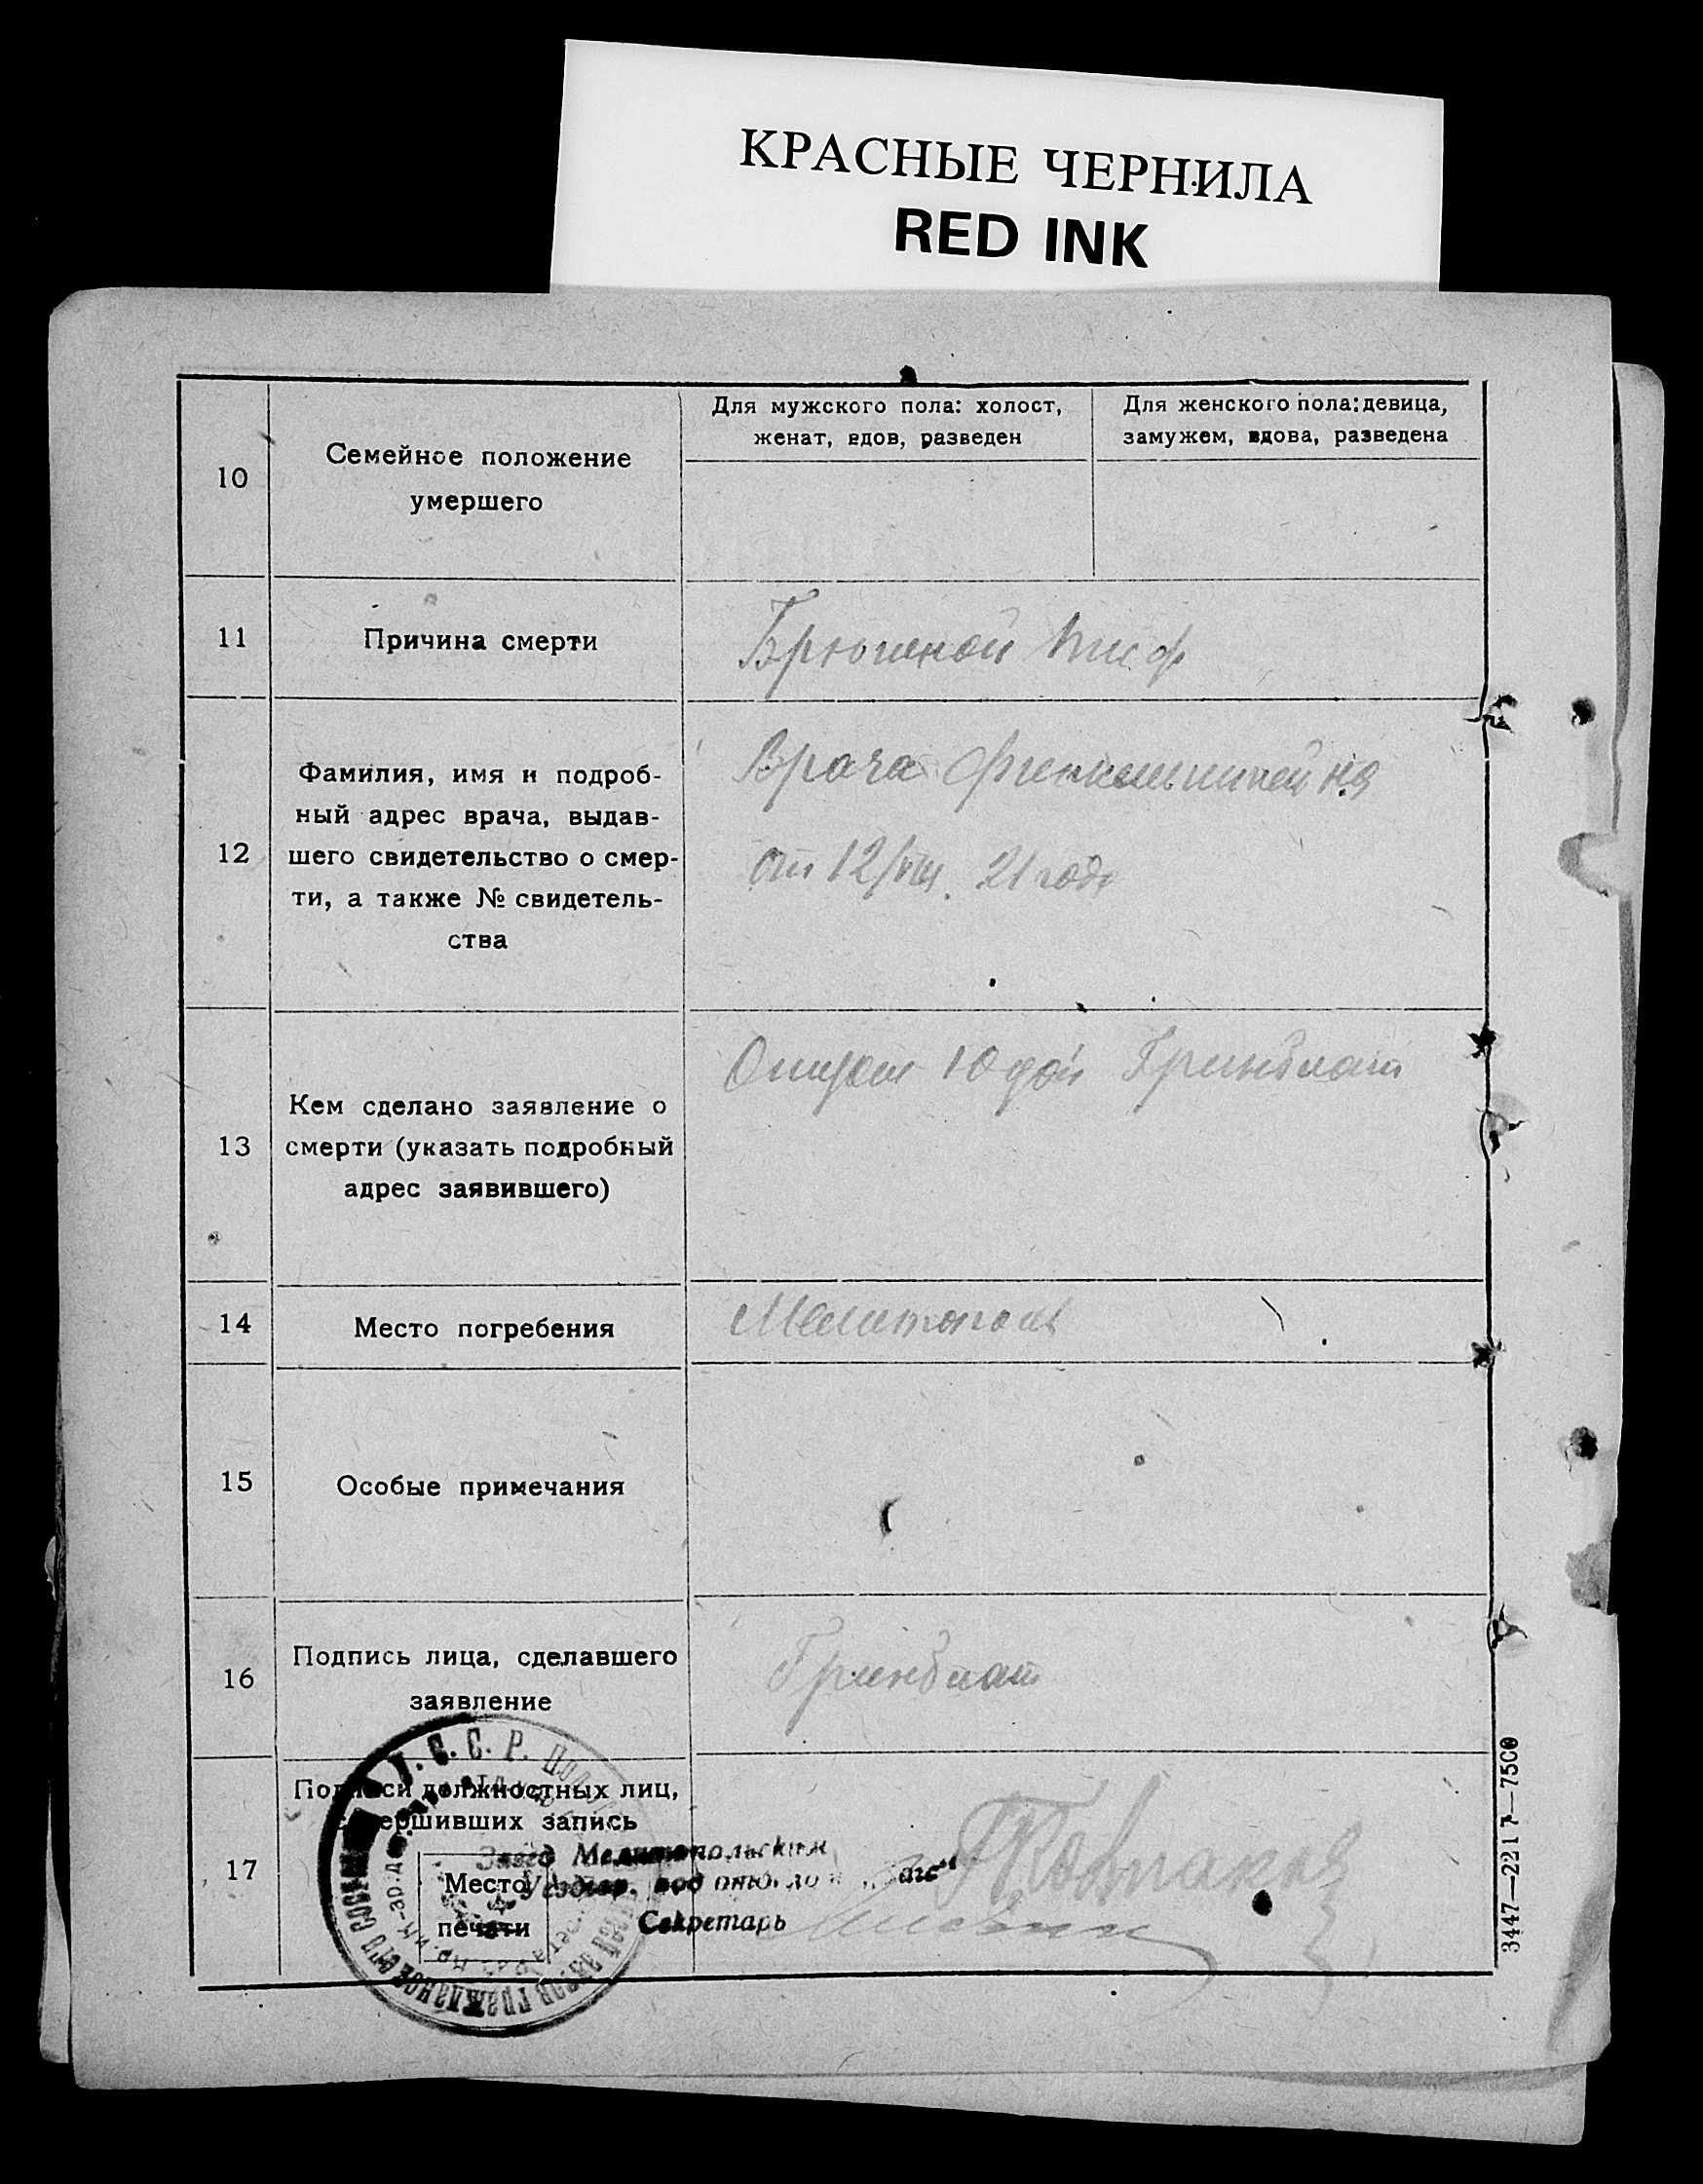 КРАСНЫЕ ЧЕРНИЛА
RED INK
10
Семейное положение
умершего
Для мужского пола: холост,
женат, вдов, разведен
Для женского пола: девица,
замужем, вдова, разведена
11
Причина смерти
Брюшной тиф
12
Фамилия, имя и подроб-
ный адрес врача, выдав-
шего свидетельство о смер-
ти, а также № свидетель-
ства
Врача Финкельштейна
от 12/VIII 21 года
13
Кем сделано заявление о
смерти (указать подробный
адрес заявившего)
Гринблат
14
Место погребения
Мелитополь
15
Особые примечания
16
Подпись лица, сделавшего
заявление
Гринблат
17
Подписи должностных лиц,
совершивших запись
Место
печати
У. С. С. Р.
Завед Мелитопольским
Секретарь
3447—2217—7500